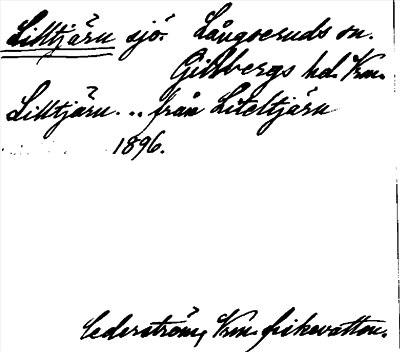 Lilltjärn sjö. Långseruds sn.
Gillbergs hd. Vrm.
Lilltjärn... från Liteltjärn
1896.
Cederström, Vrm. fiskevatten.